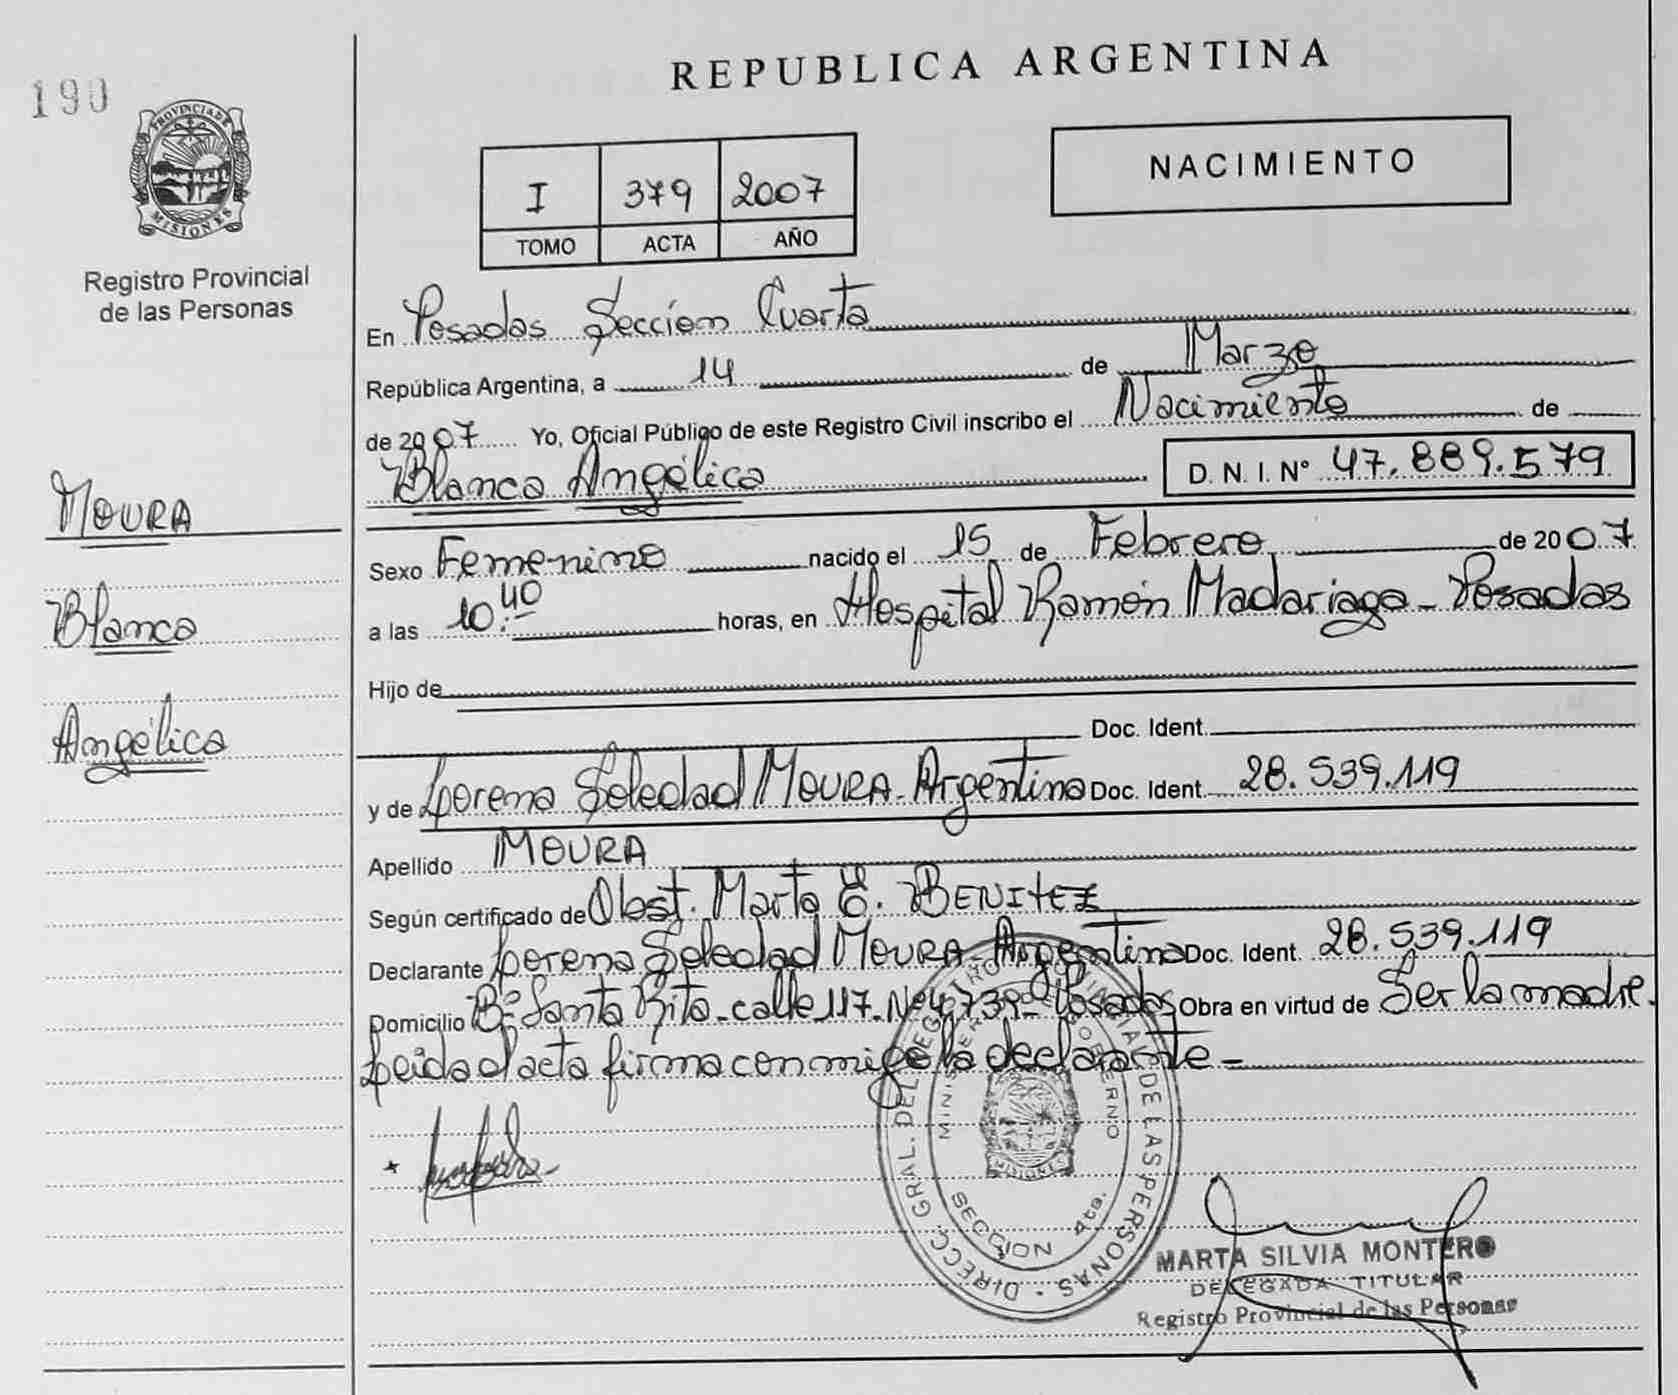 190
PROVINCIA DE
MISIONES
Registro Provincial
de las Personas
REPUBLICA ARGENTINA
I 379 2007
TOMO ACTA AÑO
NACIMIENTO
En Posadas Sección Cuarta
República Argentina, a 14 de Marzo
de 2007 Yo, Oficial Público de este Registro Civil inscribo el Nacimiento de
Blanca Angélica D. N. I. Nº 47.889.579
MOURA
Blanca
Angélica
Sexo Femenino nacido el 15 de Febrero de 2007
a las 10:40 horas, en Hospital Ramón Madariaga - Posadas
Hijo de
Doc. Ident.
y de Lorena Soledad MOURA - Argentina Doc. Ident. 28.539.119
Apellido MOURA
Según certificado de Obst. Marta E. BENITEZ
Declarante Lorena Soledad MOURA - Argentina Doc. Ident. 28.539.119
Domicilio Bº Santa Rita - calle 117 - Nº 4739 - Posadas Obra en virtud de Ser la madre.
Leida el acta firma conmigo la declarante =
DIRECC. GRAL. DEL REGISTRO PROVINCIAL DE LAS PERSONAS
MINISTERIO GOBIERNO
MISIONES
SECCION 4ta.
MARTA SILVIA MONTERO
DELEGADA TITULAR
Registro Provincial de las Personas